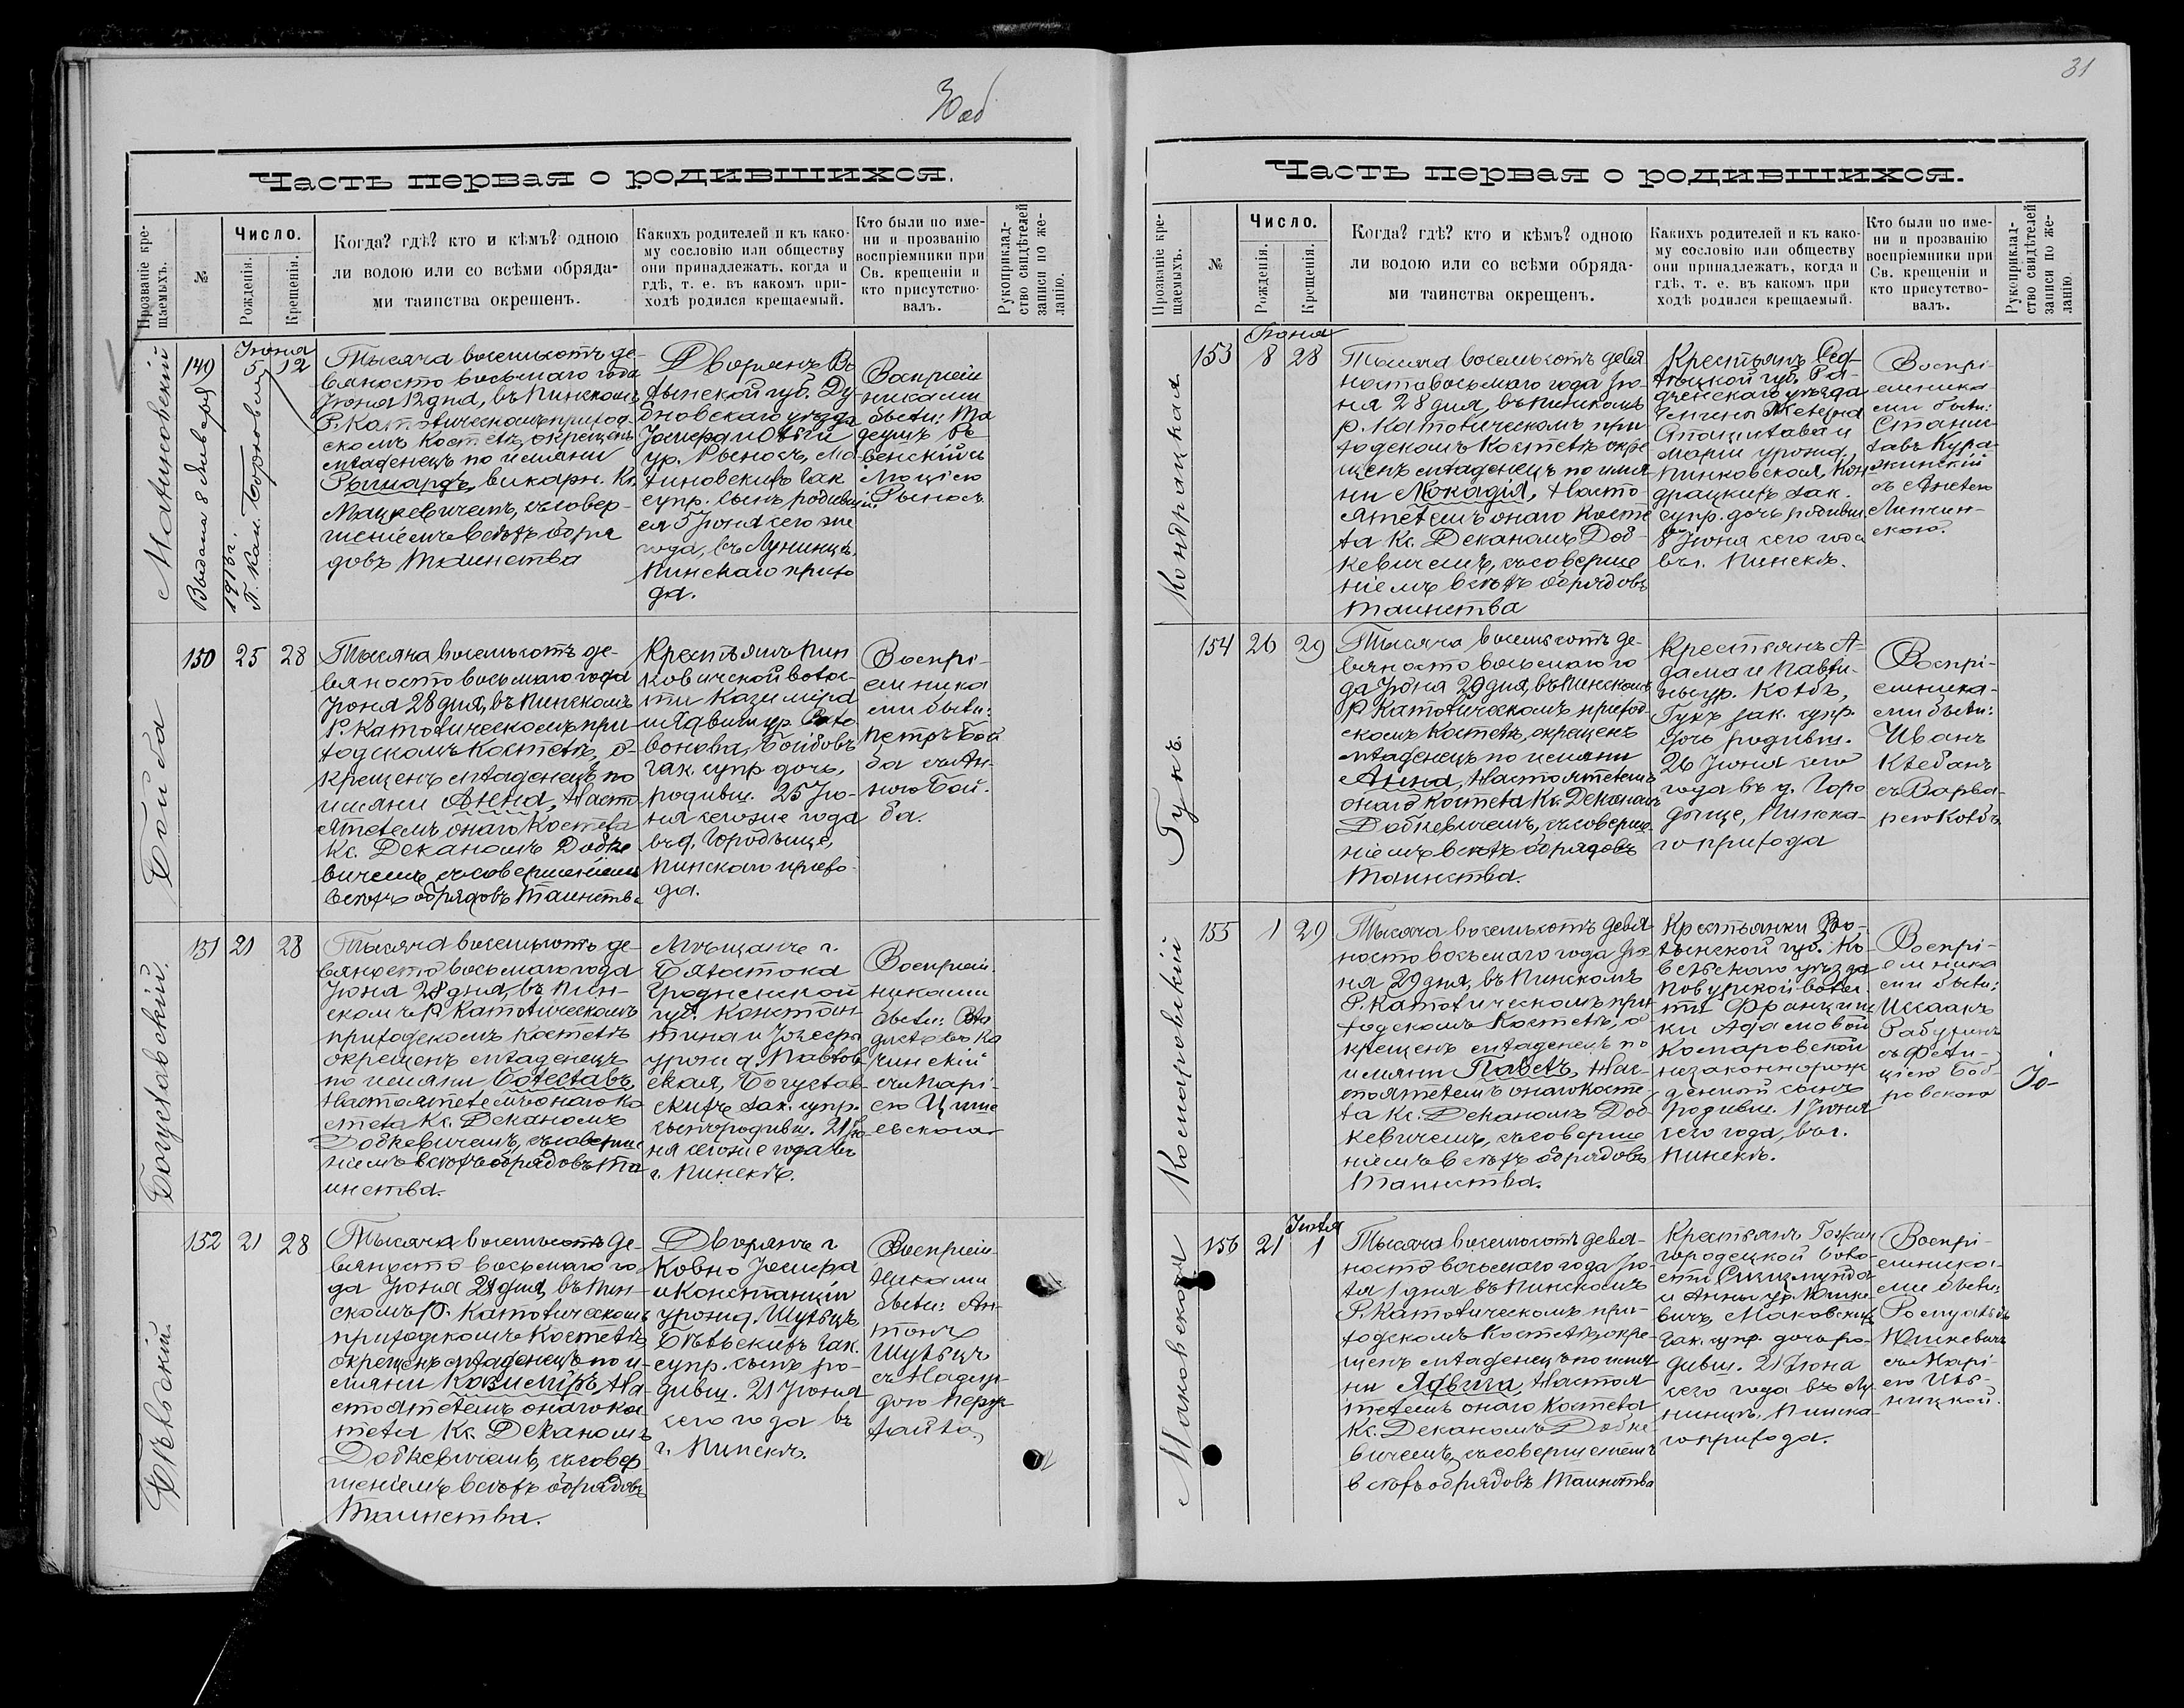 30 об
Часть первая о родившихся.
Прозваніе кре-
щаемыхъ.
№
Число.
Рожденія.
Крещенія.
Когда? гдѣ? кто и кѣмъ? одною
ли водою или со всѣми обряда-
ми таинства окрещенъ.
Какихъ родителей и къ како-
му сословію или обществу
они принадлежатъ, когда и
гдѣ, т. е. въ какомъ при-
ходѣ родился крещаемый.
Кто были по име-
ни и прозванію
воспріемники при
Св. крещеніи и
кто присутство-
валъ.
Рукоприклад-
ство свидѣтелей
записи по же-
ланію.
Малиновскій
149
Выдана 8 Января
1913 г.
Іюня
5 12
Тысяча восемьсотъ де-
вяносто восьмаго года
Іюня 12 дня, въ Пинскомъ
Р. Католическомъ приход-
скомъ Костелѣ, окрещенъ
младенецъ по имяни
Ришардъ, викарн. Кс.
Мацкевичемъ, съ совер-
шеніемъ всѣхъ обря
довъ Таинства
Дворянъ Во
лынской губ. Ду-
бновскаго уѣзда
ур. Рыносъ, Ма
линовскихъ зак
супр. сынъ родивш
ся 5 Іюня сего же
года, въ Лунинцѣ,
Пинскаго прихо
да.
Воспріем
никами
были: Та
деушъ
Бойба
150
25 28
Тысяча восемьсотъ де-
вяносто восьмаго года
Іюня 28 дня, въ Пинскомъ
Р. Католическомъ при-
ходскомъ Костелѣ, о-
крещенъ младенецъ по
имяни Анна, Насто-
ятелемъ онаго Костела
Кс. Деканомъ Добке
вичемъ, съ совершеніемъ
всѣхъ обрядовъ Таинства
Крестьянъ Пин
ковичской волос-
ти Казиміра
Бойбовъ
зак. супр. дочь,
родивш. 25 Ію-
ня сего же года
въ д. Городыще,
Пинскаго прихо-
да.
Воспрі-
емника
ми были:
Петръ Бой
ба съ Ан-
ною Бой-
ба.
Богуславскій.
151
21 28
Тысяча восемьсотъ де-
вяносто восьмаго года
Іюня 28 дня, въ Пин-
скомъ Р. Католическомъ
приходскомъ Костелѣ
окрещенъ младенецъ
по имяни Болеславъ,
Настоятелемъ онаго Ко
стела Кс. Деканомъ
Добкевичемъ, съ соверше
ніемъ всѣхъ обрядовъ Та
инства.
Мѣщанъ г.
Бялостока
Гродненской
губ. Констан-
тина и Іозефы
урожд. Павлов-
ская, Богуслав-
скихъ зак. супр.
сынъ родивш. 21 Ію-
ня сего же года въ
г. Пинскѣ.
Воспріем-
никами
были: Вла
диславъ Ка
чинскій
съ Марі-
ею
Бѣльскій.
152
21 28
Тысяча восемьсотъ де-
вяносто восьмаго го-
да Іюня 28 дня, въ Пин-
скомъ Р. Католическомъ
приходскомъ Костелѣ,
окрещенъ младенецъ по и-
мяни Казиміръ, На-
стоятелемъ онаго Кос
тела Кс. Деканомъ
Добкевичемъ, съ совер
шеніемъ всѣхъ обрядовъ
Таинства.
Дворянъ г.
Ковно Іосифа
и Констанціи
урожд. Шульцъ,
Бѣльскихъ зак.
супр. сынъ ро-
дивш. 21 Іюня
сего года въ
г. Пинскѣ.
Воспріем-
никами
были: Ан-
тонъ
Шульцъ
съ Надеж-
дою
31
Часть первая о родившихся.
Прозваніе кре-
щаемыхъ.
№
Число.
Рожденія.
Крещенія.
Когда? гдѣ? кто и кѣмъ? одною
ли водою или со всѣми обряда-
ми таинства окрещенъ.
Какихъ родителей и къ како-
му сословію или обществу
они принадлежатъ, когда и
гдѣ, т. е. въ какомъ при
ходѣ родился крещаемый.
Кто были по име-
ни и прозванію
воспріемники при
Св. крещеніи и
кто присутство-
валъ.
Рукоприклад-
ство свидѣтелей
записи по же-
ланію.
Кондрацкая
153
Іюня
8 28
Тысяча восемьсотъ девя
носто восьмаго года Ію-
ня 28 дня, въ Пинскомъ
Р. Католическомъ при
ходскомъ Костелѣ окре
щенъ младенецъ по имя
ни Леокадія, Насто
ятелемъ онаго Косте
ла Кс. Деканомъ Доб-
кевичемъ, съ соверше
ніемъ всѣхъ обрядовъ
Таинства
Крестьянъ Сѣд-
лецкой губ. Ра-
динскаго уѣзда
Маріи урожд.
Пинковская, Кон
драцкихъ зак.
супр. дочь родивш.
8 Іюня сего года
въ г. Пинскѣ.
Воспрі-
емника-
ми были:
Станис
лавъ Кура-
жинскій
Гукъ.
154
26 29
Тысяча восемьсотъ де-
вяносто восьмаго го
да Іюня 29 дня, въ Пинскомъ
Р. Католическомъ приход-
скомъ Костелѣ, окрещенъ
младенецъ по имяни
Анна, Настоятелемъ
онаго Костела Кс. Деканомъ
Добкевичемъ, съ соверше-
ніемъ всѣхъ обрядовъ
Таинства.
Крестьянъ А-
дама и Павли-
ны ур. Колбъ,
Гукъ зак. супр.
дочь родивш.
26 Іюня сего
года въ д. Горо
дыще, Пинска-
го прихода
Воспрі-
емника-
ми были:
Иванъ
Клебанъ
съ Варва-
рею Колбъ.
Комаровскій
155
1 29
Тысяча восемьсотъ девя
носто восьмаго года Ію
ня 29 дня, въ Пинскомъ
Р. Католическомъ при
ходскомъ Костелѣ, о
крещенъ младенецъ по
имяни Павелъ, Нас-
тоятелемъ онаго Косте-
ла Кс. Деканомъ Доб
кевичемъ, съ соверше
ніемъ всѣхъ обрядовъ
Таинства.
Крестьянки Во-
лынской губ. Ко-
вельскаго уѣзда
Повурской волос
ти Францишк
ки Адамовой
Комаровской
незаконнорож
денный сынъ
родивш. 1 Іюня
сего года, въ г.
Пинскѣ.
Воспрі-
емника
ми были:
съ Фели-
ціею Боб-
ровскою
Маковская
156
21
Іюля
1
Тысяча восемьсотъ девя-
носто восьмаго года Ію-
ля 1 дня въ Пинскомъ
Р. Католическомъ при-
ходскомъ Костелѣ, окре-
щенъ младенецъ по имя
ни Ядвига, Настоя
телемъ онаго Костела
Кс. Деканомъ Добке
вичемъ, съ совершеніемъ
всѣхъ обрядовъ Таинства
городецкой воло-
сти Сигизмунда
и Анны ур. Юшке
вичъ, Маковскихъ
зак. супр. дочь ро-
дивш. 21 Іюня
сего года въ Лу
нинцѣ, Пинска-
го прихода.
Воспрі-
емника-
ми были:
Ромуальдъ
Юшкевичъ
съ Марі-
ею